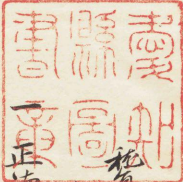 愛知
縣圖
書章
一正